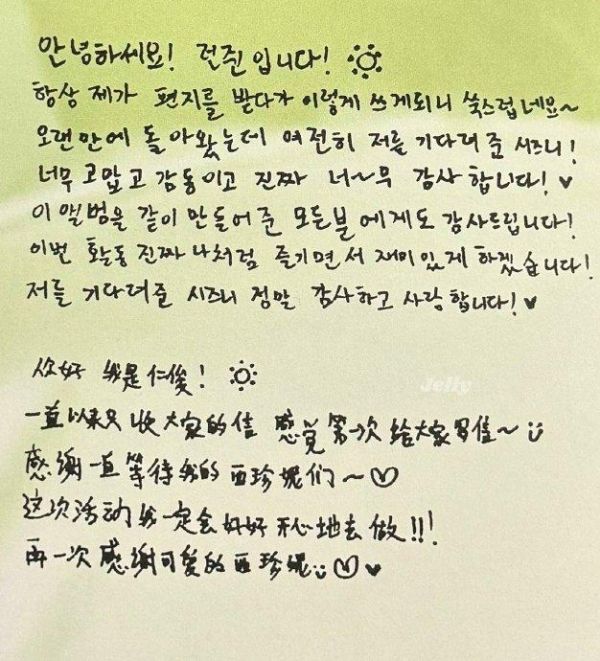 안녕하세요! 런쥔입니다!
항상 제가 편지를 받다가 이렇게 쓰게되니 쑥스럽네요~
오랜만에 돌아왔는데 여전히 저를 기다려준 시즈니!
너무 고맙고 감동이고 진짜 너~무 감사합니다! ♥
이 앨범을 같이 만들어준 모든분에게도 감사드립니다!
이번 활동 진짜 나처럼 즐기면서 재미있게 하겠습니다!
저를 기다려준 시즈니 정말 감사하고 사랑합니다! ♥
你好 我是仁俊!
一直以来只收大家的信 感觉第一次给大家写信~
感谢一直等待我的西珍妮们~♡
这次活动我一定会好好开心地去做!!!
再一次感谢可爱的西珍妮♡♥
Jelly